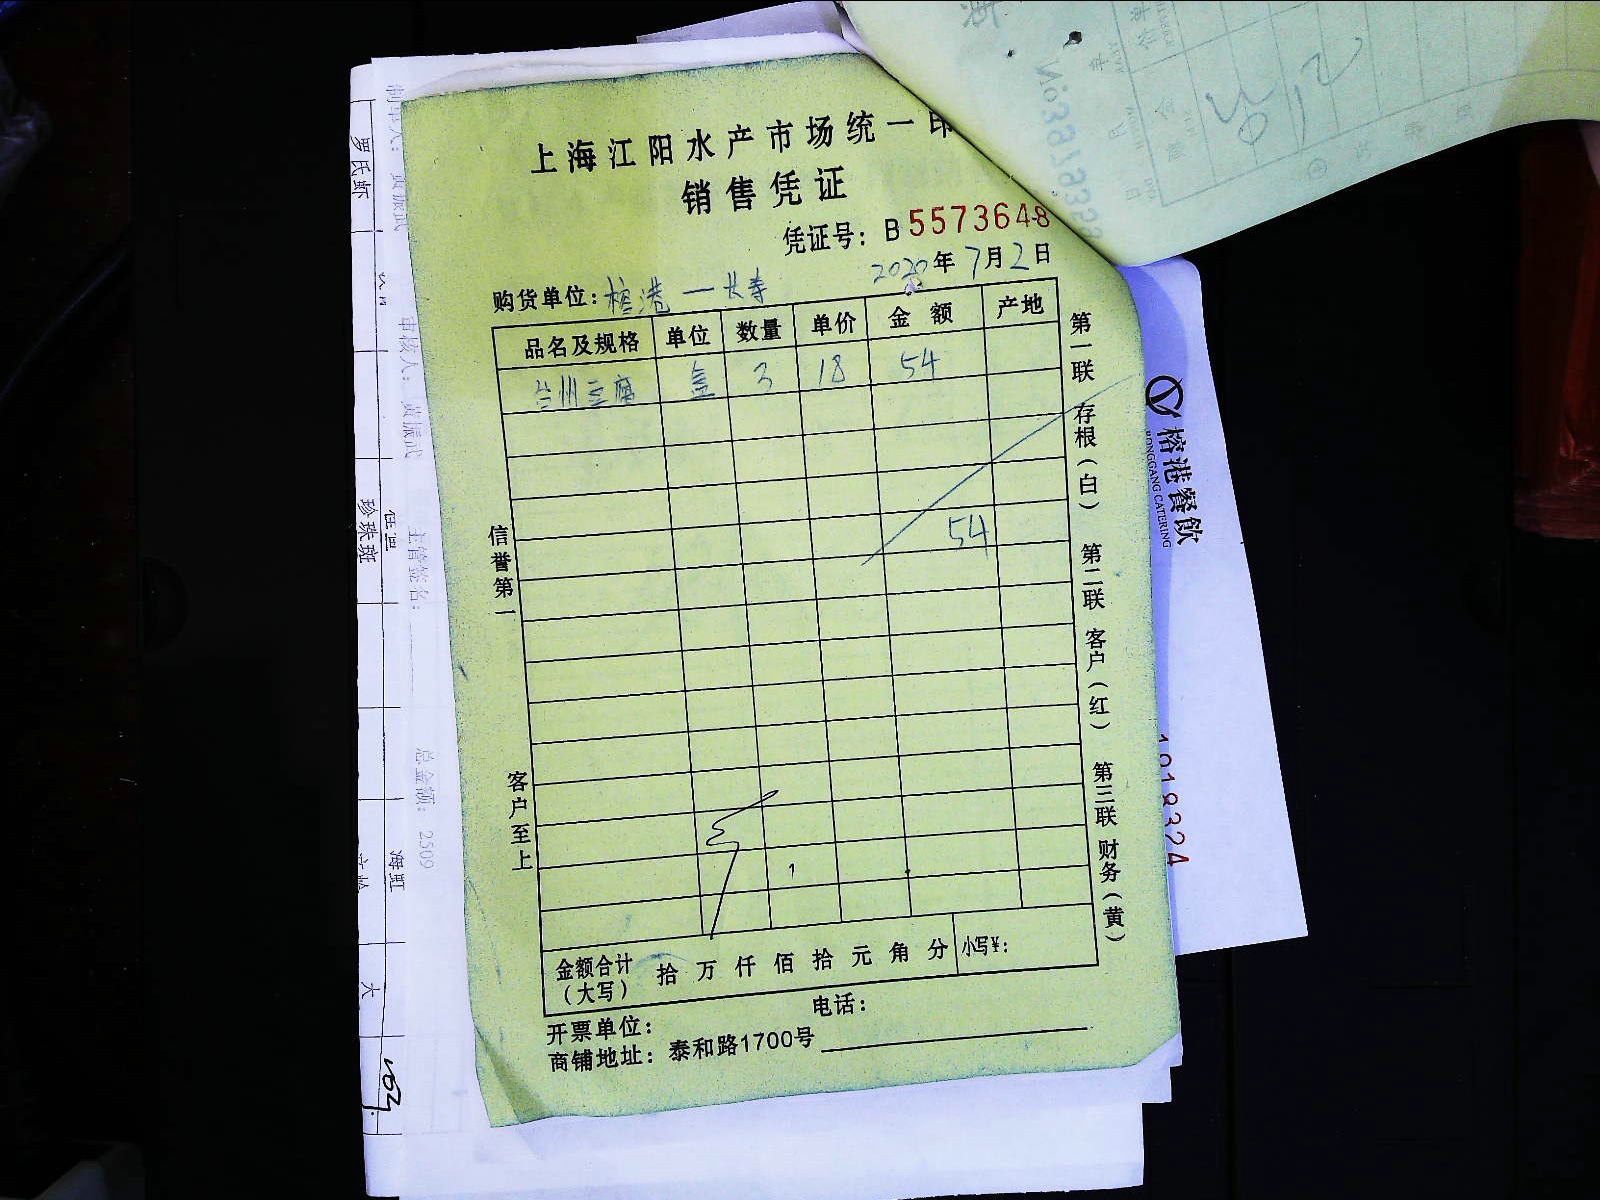 上海江阳水产市场统一印
销售凭证
凭证号：B 5573648
2020年7月2日
购货单位：榕港一长寿
品名及规格 单位 数量 单价 金额 产地
台州豆腐 盒 3 18 54
54
信誉第一
客户至上
第一联 存根（白） 第二联 客户（红） 第三联 财务（黄）
金额合计（大写） 拾 万 仟 佰 拾 元 角 分 小写¥：
开票单位： 电话：
商铺地址：泰和路1700号
榕港餐飲
RONGGANG CATERING
罗氏虾
珍珠斑
审核人：黄振武
主管签名：
总金额：2509
海虹
大